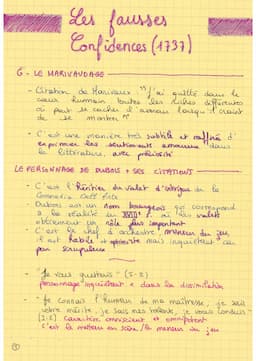 Les fausses
Confidences (1737)
6 - LE MARIVAUDAGE
- Citation de Marivaux "J'ai guetté dans le
coeur humain toutes les niches différentes
où peut se cacher l'amour lorsqu'il craint
de se montrer"
- C'est une manière très subtile et raffinée d'
exprimer les sentiments amoureux dans
la littérature, avec préciosité
LE PERSONNAGE DE DUBOIS + SES CITATIONS
- C'est l'héritier du valet d'intrigue de la
Commedia dell'Arte
- Dubois est un bourgeois qui correspond
à la réalité du XVIIIe s. où les valets
obtiennent un rôle plus important
- C'est le chef d'orchestre, meneur du jeu,
il est habile et mais inquiétant car
peu scrupuleux
- "Je vous guettais" (I-2)
personnage inquiétant + dans la dissimulation
- "Je connais l'humeur de ma maîtresse, je sais
votre mérite, je sais mes talents, je vous conduis"
(I-2) caractère omniscient et omnipotent
c'est le metteur en scène / le meneur du jeu
①